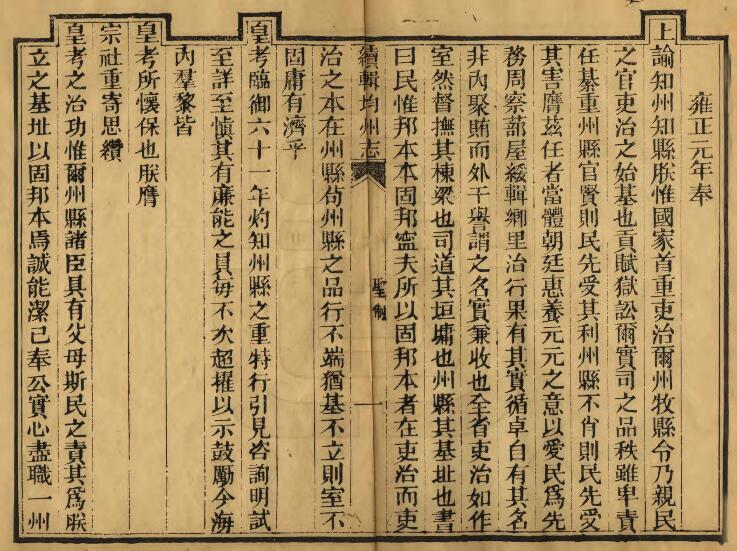 雍正元年奉
上諭知州知縣朕惟國家首重吏治爾州牧縣令乃親民
之官吏治之始基也貢賦獄訟爾實司之品秩雖卑責
任綦重州縣官賢則民先受其利州縣不肖則民先受
其害膺茲任者當體朝廷惠養元元之意以愛民爲先
務周察蔀屋綏輯鄉里治行果有其實循卓自有其名
非內聚賄而外干譽謂之名實兼收也全省吏治如作
室然督撫其棟梁也司道其垣墉也州縣其基址也書
曰民惟邦本本固邦寧夫所以固邦本者在吏治而吏
續輯均州志 聖制 一
治之本在州縣苟州縣之品行不端猶基不立則室不
固庸有濟乎
皇考臨御六十一年灼知州縣之重特行引見咨詢明試
至詳至慎其有廉能之員每不次超擢以示鼓勵今海
內羣黎皆
皇考所懷保也朕膺
宗社重寄思纘
皇考之治功惟爾州縣諸臣具有父母斯民之責其爲朕
立之基址以固邦本焉誠能潔己奉公實心盡職一州